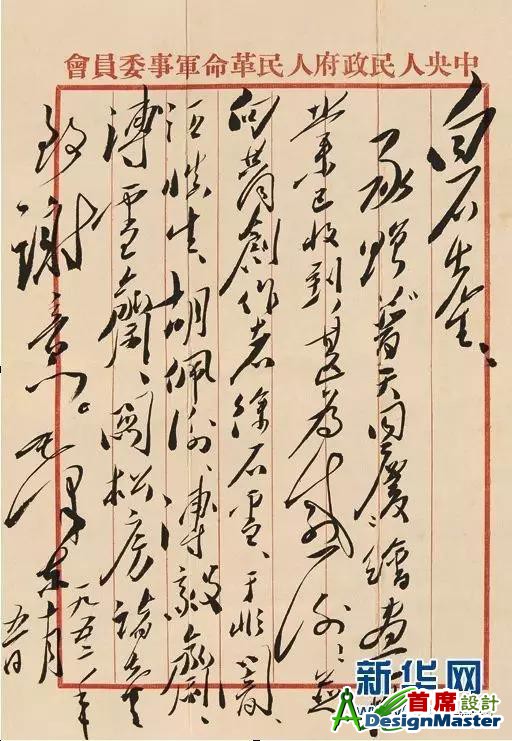 中央人民政府人民革命軍事委員會
白石先生:
承贈《普天同慶》繪畫一
業已收到,甚為感謝!並
向共同創作者徐石雪、于非闇、
汪慎生、胡佩衡、溥毅齋、
溥雪齋、關松房諸先生
致謝意。毛澤東
一九五二年
十月
五日
新华网
首席設計
DesignMaster